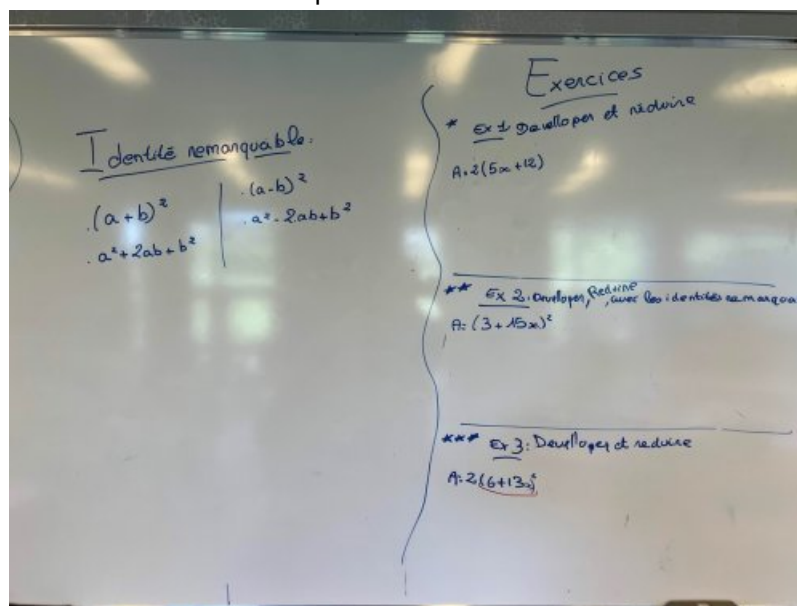 Identité remarquable.
.(a+b)²
. a²+2ab+b²
.(a-b)²
. a²-2ab+b²
Exercices
* Ex 1 Developer et réduire
A=2(5x+12)
** Ex 2: Developer, Reduire, avec les identités remarqua
A=(3+15x)²
*** Ex 3: Developer et reduire
A=2(6+13x)²